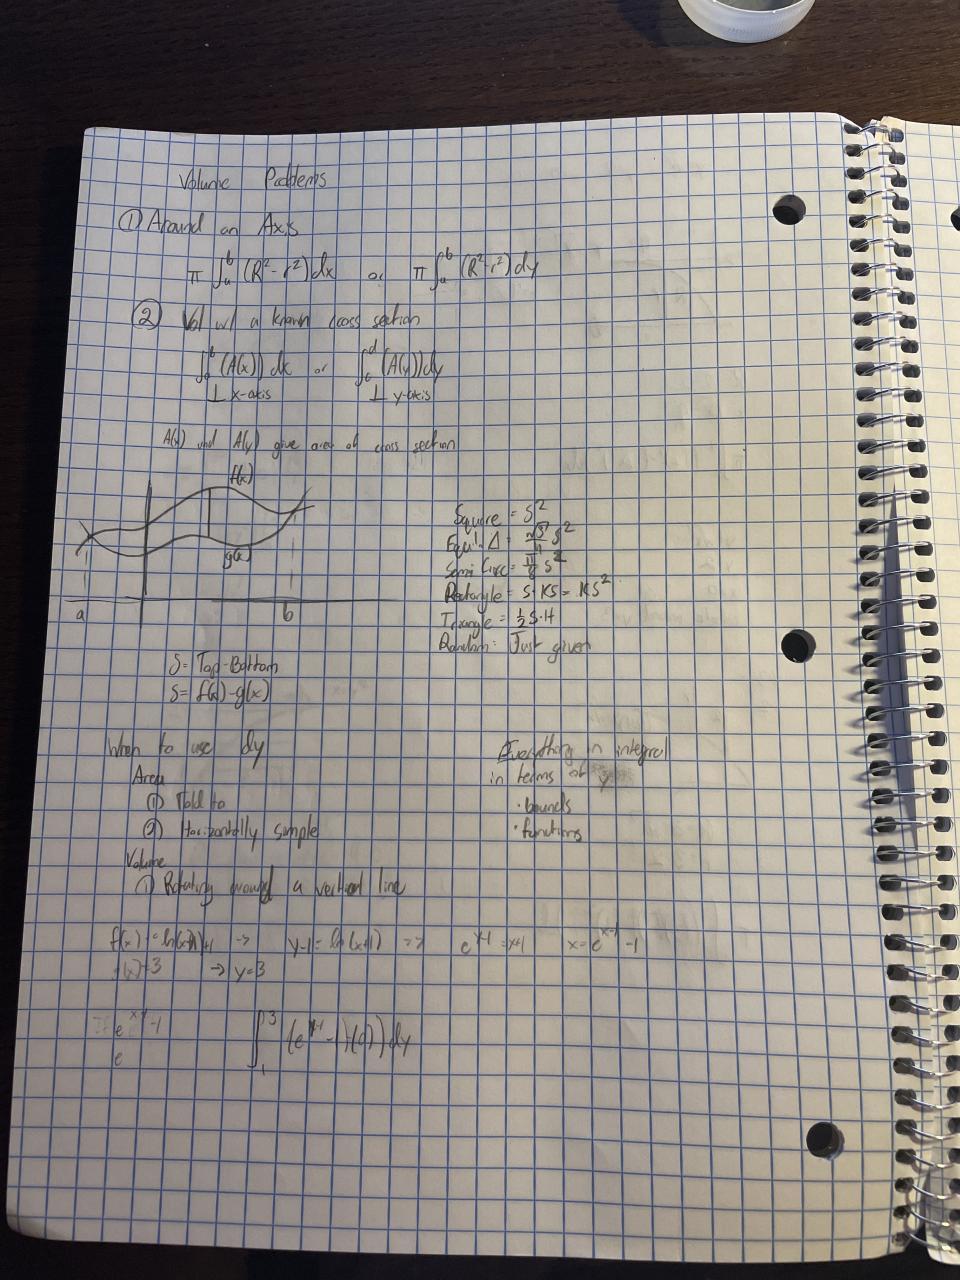 Volume Problems
① Around an Axis
π ∫ₐᵇ (R² - r²) dx or π ∫ₐᵇ (R² - r²) dy
② Vol w/ a known cross section
∫ₐᵇ (A(x)) dx or ∫ᶜᵈ (A(y)) dy
⊥ x-axis ⊥ y-axis
A(x) and A(y) give area of cross section
f(x)
g(x)
a b
Square = S²
Equil. Δ = √3/4 S²
Semi Circ = π/8 S²
Rectangle = S · KS = KS²
Triangle = ½ S·H
Random: Just given
S = Top - Bottom
S = f(x) - g(x)
When to use dy
Area
① Told to
② Horizontally simple
Volume
① Rotating around a vertical line
Everything in integral
in terms of y
· bounds
· functions
f(x) = ln(x+1)+1 -> y-1 = ln(x+1) => = x+1 x = e^(x-1) - 1
(x)=3 -> y=3
e - 1
e
∫₁³ dy